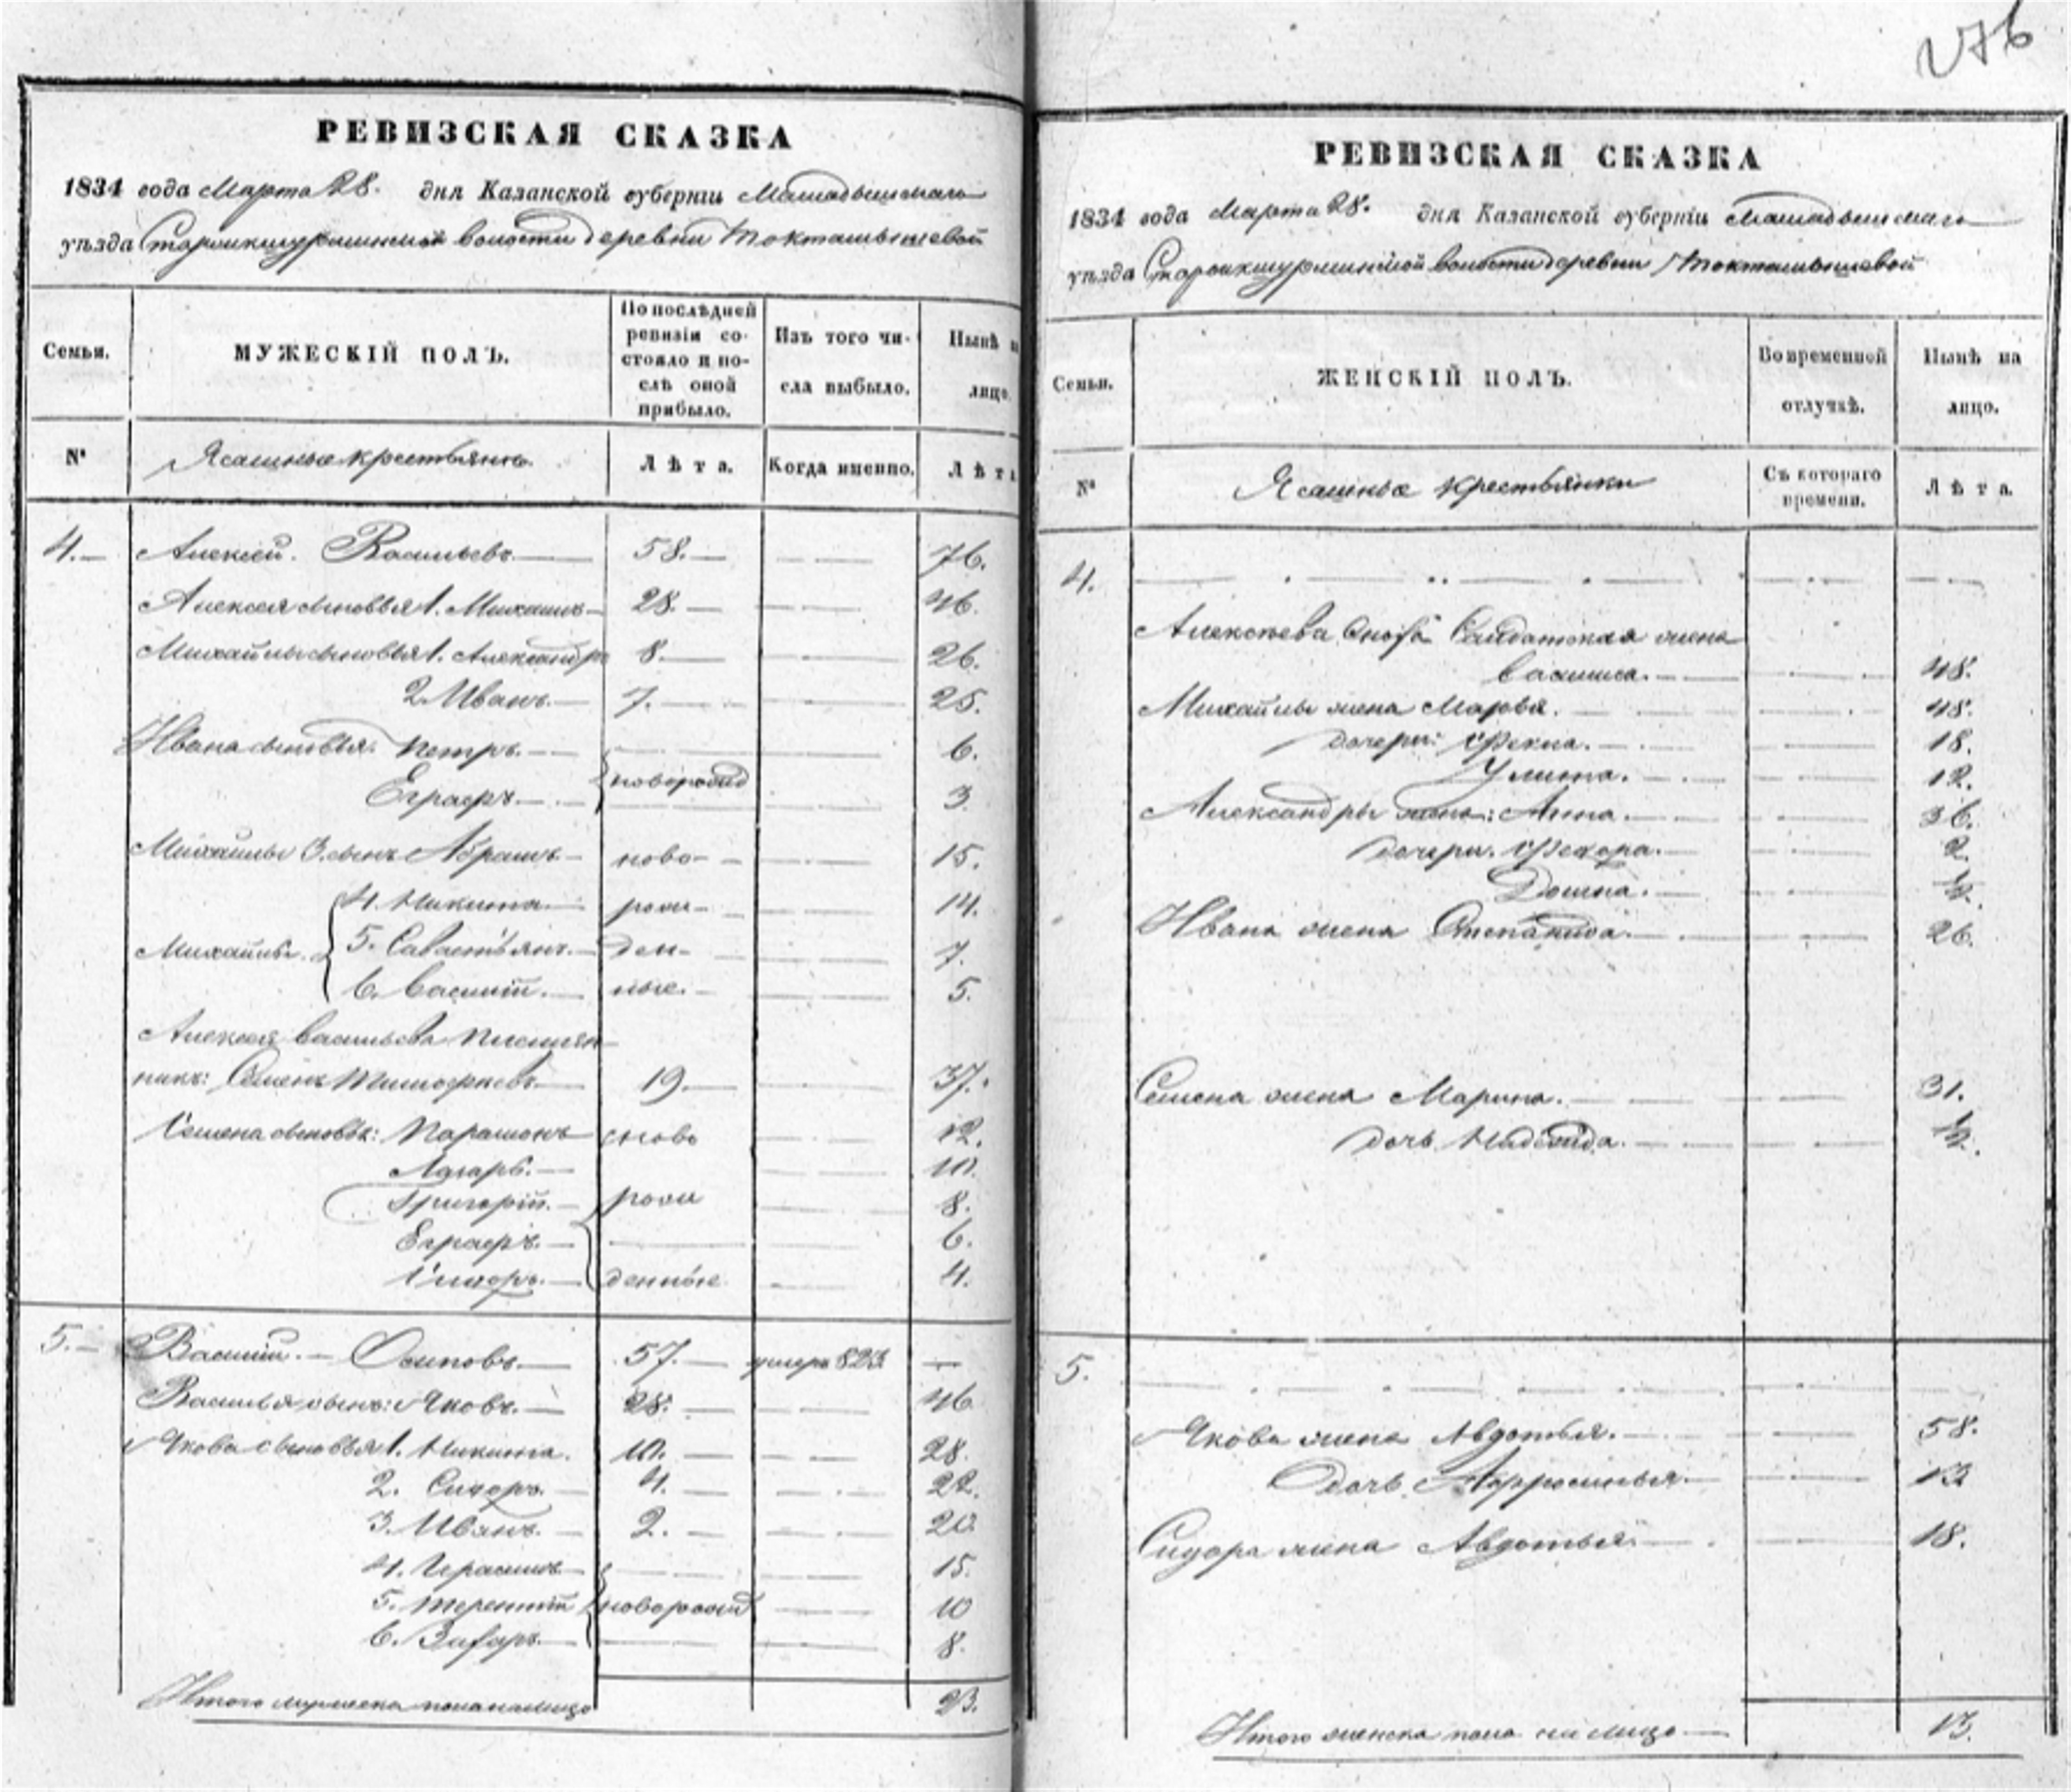 276
РЕВИЗСКАЯ СКАЗКА
1834 года Марта 28. дня Казанской губерніи Мамадышскаго
уѣзда волости деревни Токташышевой
Семьи.
МУЖЕСКІЙ ПОЛЪ.
По послѣдней
ревизіи со-
стояло и по-
слѣ оной
прибыло.
Изъ того чи-
сла выбыло.
Нынѣ н
лицо.
№
Ясашные крестьяне.
Лѣта.
Когда именно.
Лѣт
4.— Алексей. Васильевъ.— 58.— 76.
Алексея сыновья 1. Михаилъ— 28.— 46.
Михайлы сыновья 1. Александръ 8.— 26.
2. Иванъ.— 7.— 25.
Ивана сыновья. Петръ.— 6.
новорожд
Еграфъ.— 3.
Михайлы 3. сынъ Абрамъ— ново- 15.
4. Никита.— рож- 14.
Михайлы. 5. Савастьянъ.— ден- 7.
6. Василій.— ные.— 5.
Алексея Васильева племян-
никъ: Семенъ Тимофѣевъ.— 19.— 37.
Семена сыновья: Парамонъ сново 12.
Лазарь.— 10.
Григорій.— рож 8.
Еграфъ.— 6.
Сидоръ.— денные 4.
5.— Василій.— Осиповъ.— 57.— умеръ 823. —
Василья сынъ: Яковъ.— 28.— 46.
Якова сыновья 1. Никита. 10.— 28.
2. Сидоръ.— 4.— 22.
3. Иванъ.— 2.— 20.
4. Герасимъ— 15.
5. Терентій новорожд 10
6. Захаръ.— 8.
Итого мужеска пола на лицо 23.
РЕВИЗСКАЯ СКАЗКА
1834 года Марта 28. дня Казанской губерніи Мамадышскаго
уѣзда волости деревни Токташышевой
Семьи.
ЖЕНСКІЙ ПОЛЪ.
Во временной
отлучкѣ.
Нынѣ на
лицо.
№
Ясашные крестьянки
Съ котораго
времени.
Лѣта.
4.
Алексѣева сноха Салдатская жена
Васлиса.— 48.
Михайлы жена Марья.— 48.
дочери: Фекла.— 18.
Улита.— 12.
Александры жена: Анна.— 36.
дочери. Федора.— 2.
Домна.— ½.
Ивана жена Степанида.— 26.
Семена жена Марина.— 31.
дочь Надежда.— ½.
5.
Якова жена Авдотья.— 58.
дочь Афросинья.— 13
Сидора жена Авдотья.— 18.
Итого женска пола на лицо— 13.